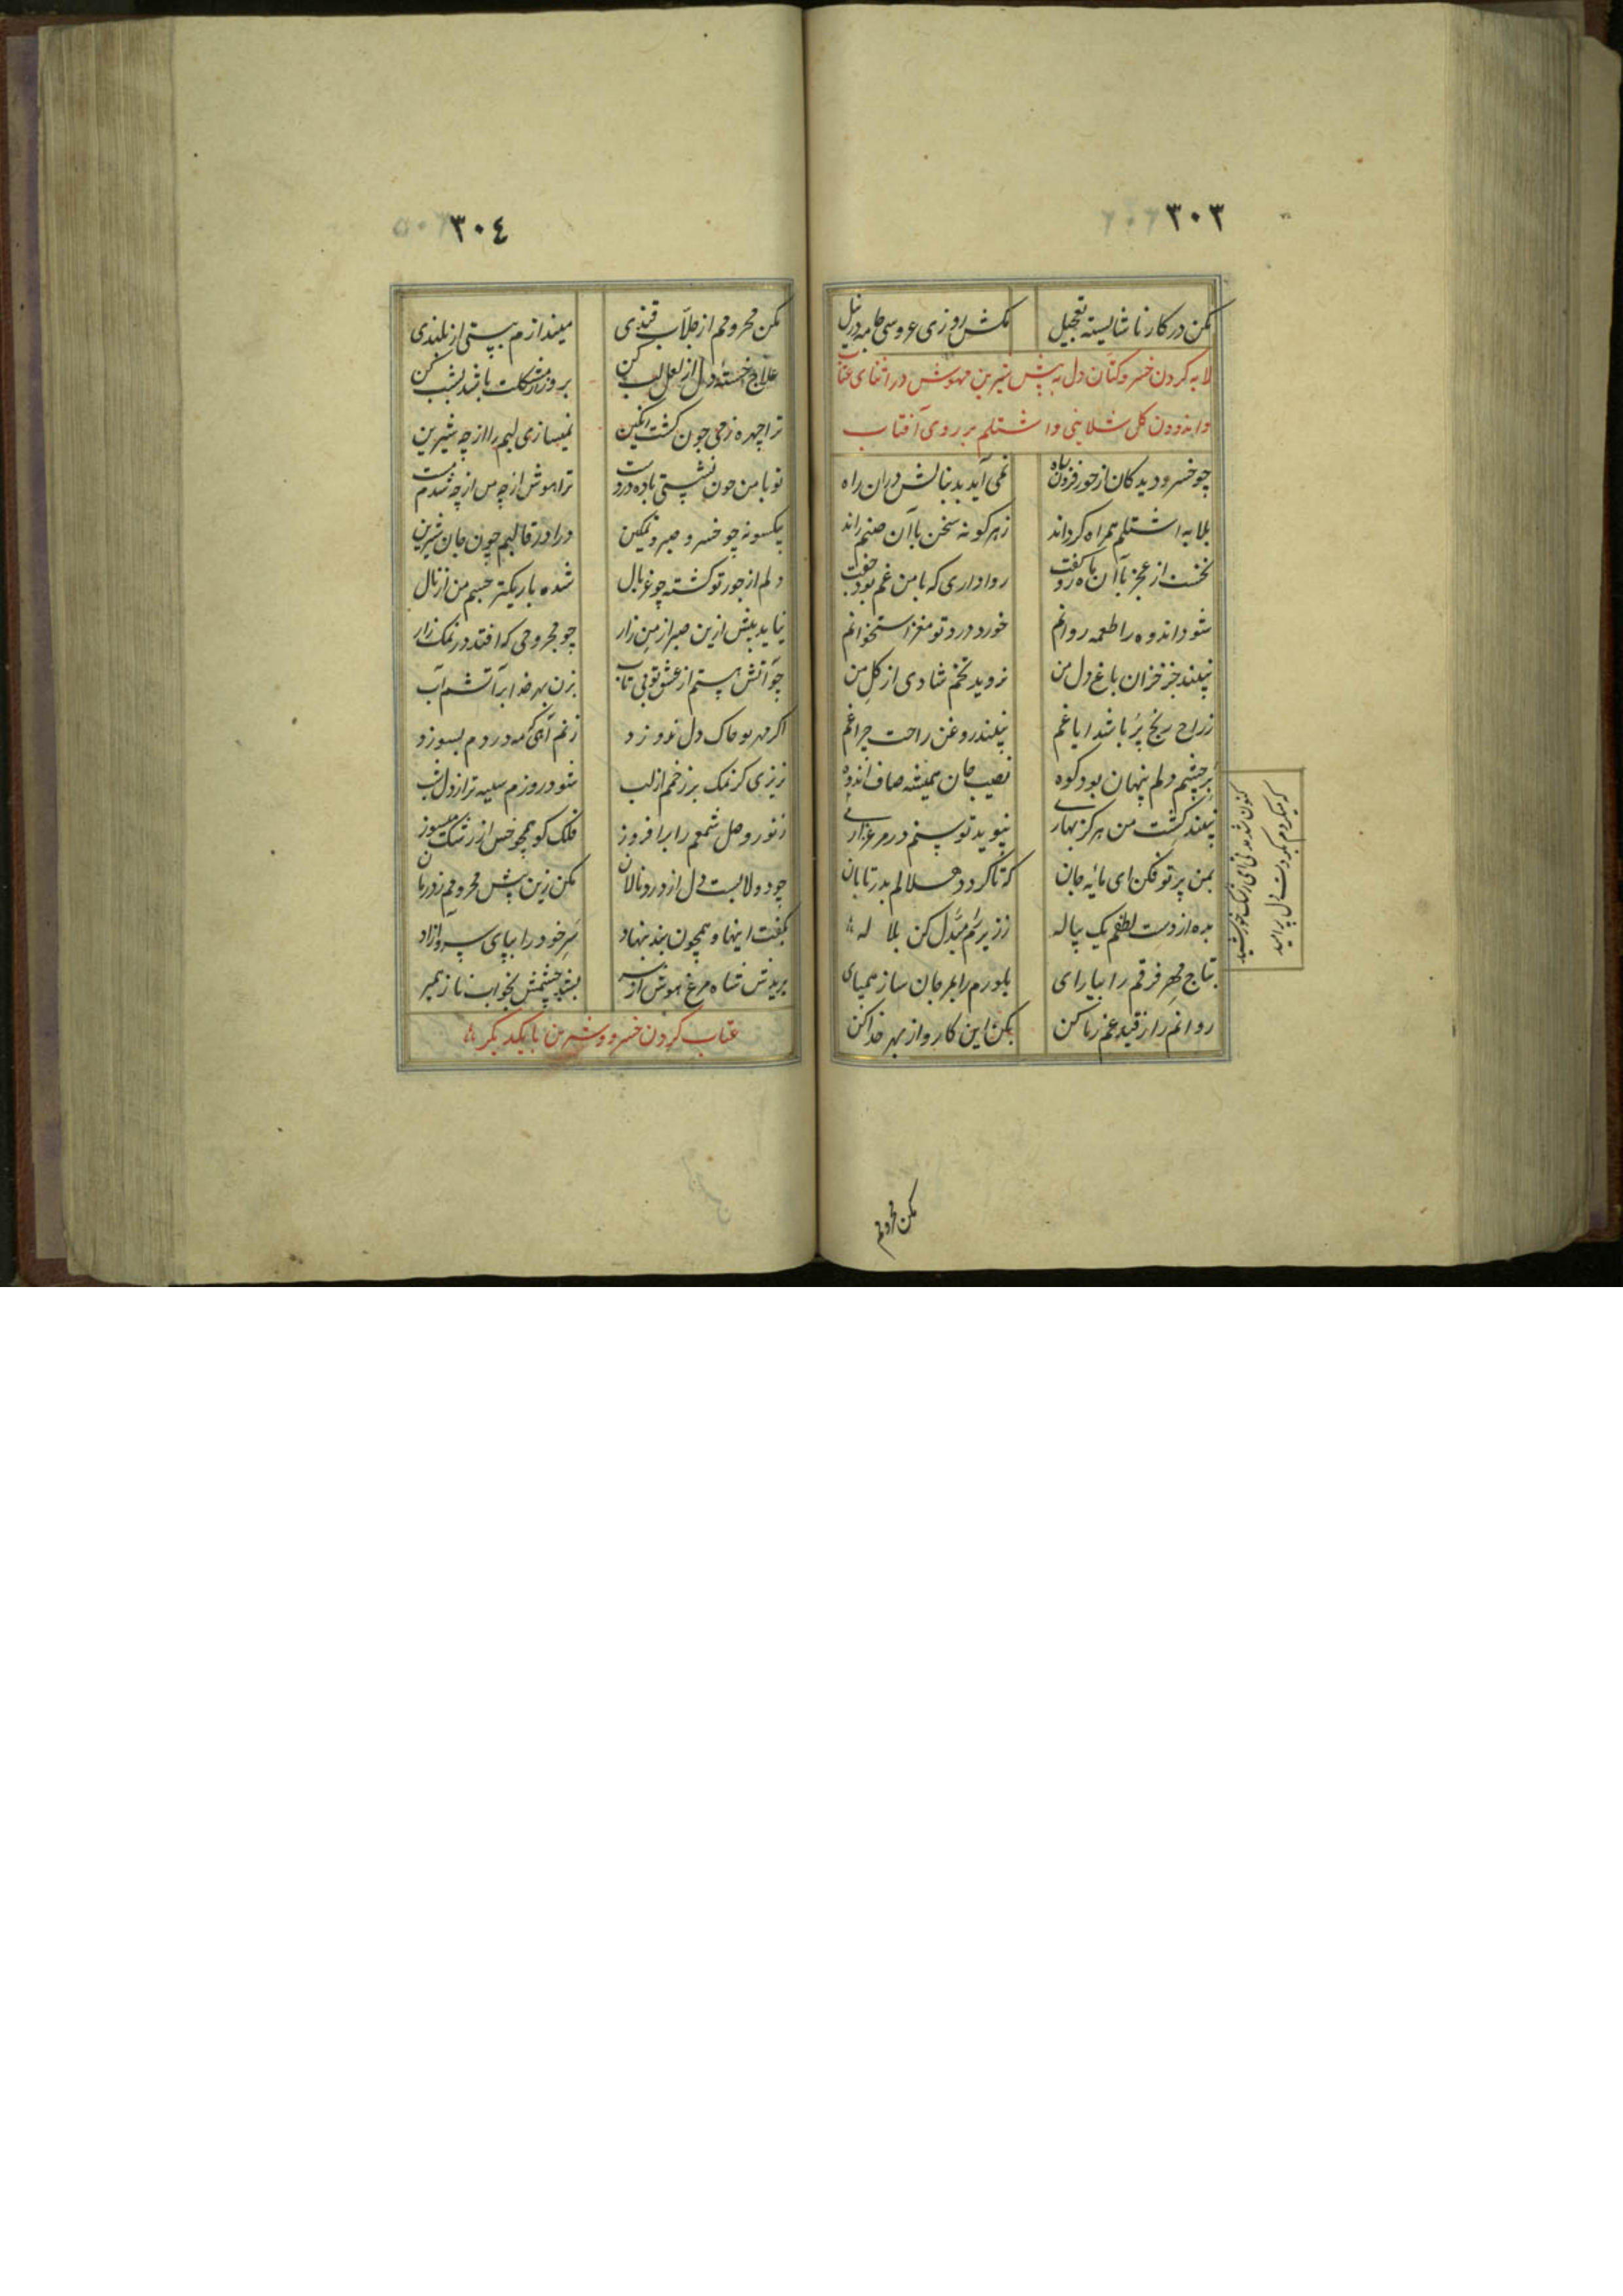 ٣٠٣
مکن در کار ناشایسته تعجیل مکش روزی عروسی جامه در نیل
لابه کردن خسرو کتان دل به پیش شیرین مهوش در اثنای عتاب
واندودن کل شلاینی واشتلم بر روی آفتاب
چو خسرو دید کان از حور فزون ماه نمی آید بدنبالش دران راه
بلابه اشتلم همراه کرداند زهر کونه سخن با آن صنم راند
نخست از عجز با آن ماه رو کفت رواداری که با من غم بود جفت
شود اندوه را طعمه روانم خورد درد تو مغز استخوانم
نبیند جز خزان باغ دل من نروید تخم شادی از کل من
ز راح رنج پر باشد ایاغم نبیند روغن راحت چراغم
بر چشم دلم پنهان بود کوه نصیب جان همیشه صاف اندوه
نبیند کشت من هرکز بهاری نپوید توسنم در مرغزاری
بمن پرتو فکن ای مایه جان که تا کردد هلالم بدر تابان
بده از دست لطفم یک پیاله ززیریم مبدل کن بلاله
بتاج مهر فرقم را بیارای بلورم را بمرجان ساز همپای
روانم را ز قید غم رها کن بکن این کار و از بهر خدا کن
کنون شد مدتی ای رشک خورشید
که میکردم بکردت دل پر امید
مکن محرومم
٣٠٤
مکن محرومم از جلاب قندی میندازم بپستی از بلندی
علاج خسته دل از لعل لب کن بروز ار مشکلت باشد بشب کن
ترا چهره زمی چون کشت رنکین نمیسازی لبم را از چه شیرین
تو با من چون نشستی باده در دست ترا هوش از چه من از چه شدم مست
بیکسو نه چو خسرو صبر و تمکین درا در قالبم چون جان شیرین
دلم از جور تو کشته چو غربال شده باریکتر جسم من از نال
نیاید بیش ازین صبر از من زار چو مجروحی که افتد در نمک زار
چو آتش هستم از عشق تو بی تاب بزن بهر خدا بر آتشم آب
اکر مهر تو چاک دل ندوزد زنم آهی که مه در دم بسوزد
نریزی کر نمک بر زخمم از لب شود روزم سیه تر از دل شب
ز نور وصل شمعم را برافروز فلک کو همچو خس از رشک میسوز
چو دولابست دل از درد نالان مکن زین پیش محرومم ز درمان
بکفت اینها و همچون بند بنهاد سر خود را بپای سرو آزاد
پریدش شاه مرغ هوش از سر بشد چشمش بخواب ناز دیکر
عتاب کردن خسرو و شیرین با یکدیکر